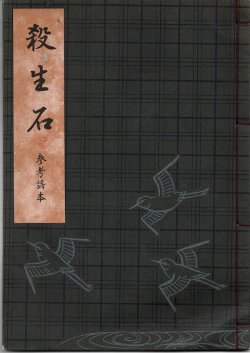 殺生石
参考謡本